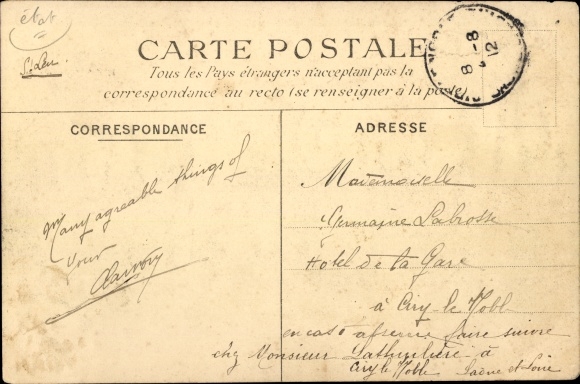 état
St Leu.
CARTE POSTALE
Tous les Pays étrangers n'acceptant pas la
correspondance au recto (se renseigner à la poste)
8 - 8
12
CORRESPONDANCE
Many agreable things of
your
ADRESSE
Mademoiselle
Germaine Labrosse
Hotel de la Gare
à Ciry le Noble
en cas d'absence faire suivre
chez Monsieur Lathuilière à
Ciry le Noble Saône et Loire